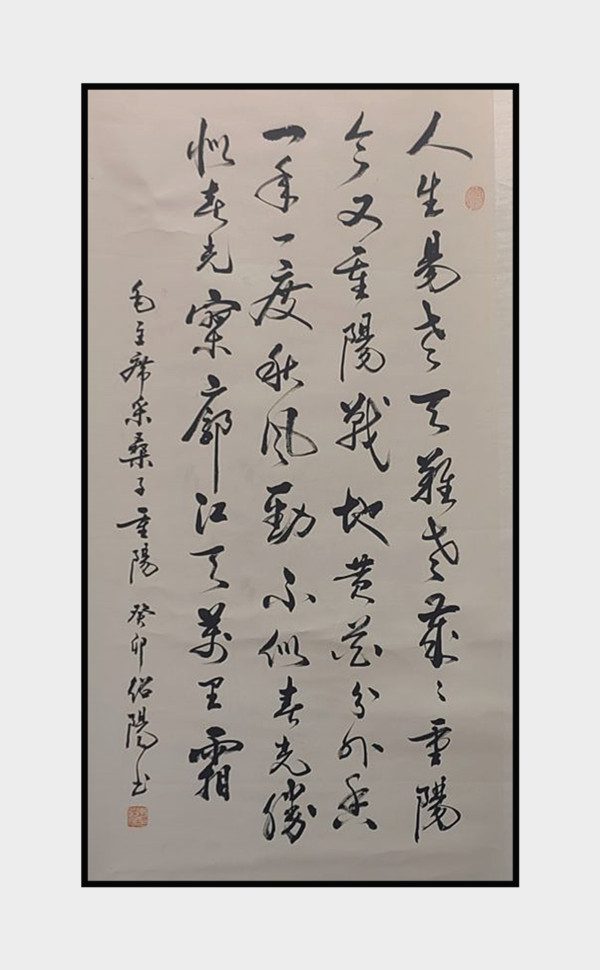 人生易老天難老歲〻重陽
今又重陽戰地黄花分外香
一年一度秋風勁不似春光勝
似春光寥廓江天萬里霜
毛主席采桑子重陽 癸卯紹陽书